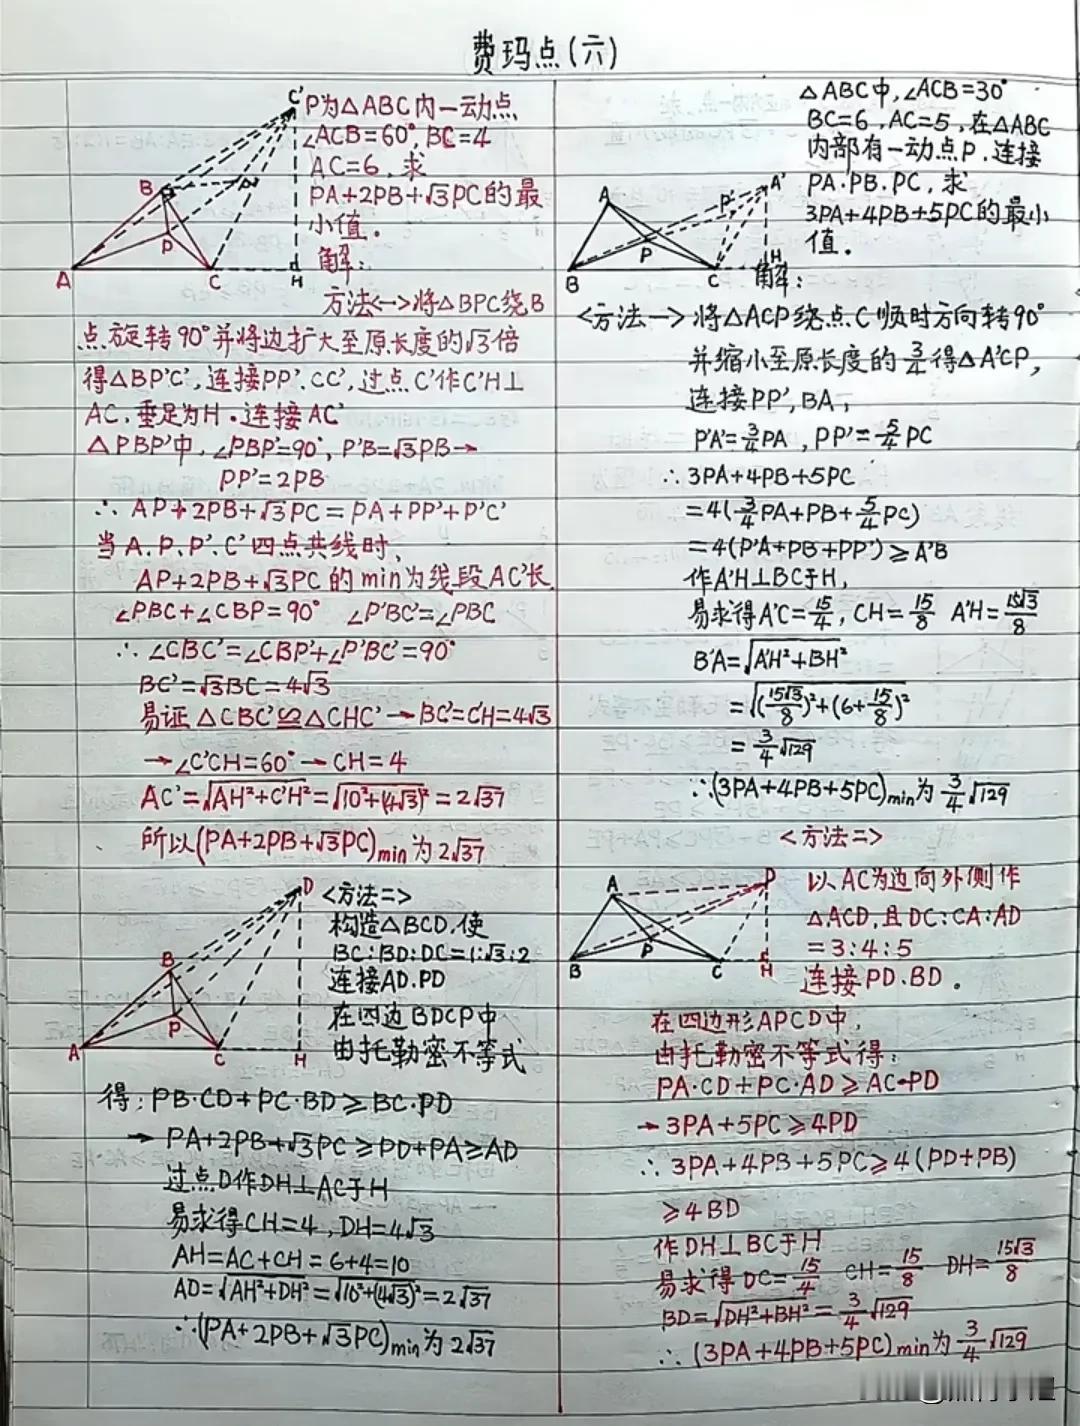 费玛点(六)
P为△ABC内一动点
∠ACB=60°, BC=4
AC=6, 求
PA+2PB+√3PC的最
小值。
解:
C'
B
P
A
C
H
方法<一>将△BPC绕B
点旋转90°并将边扩大至原长度的√3倍
得△BP'C', 连接PP', CC', 过点C'作C'H⊥
AC, 垂足为H. 连接AC'
△PBP'中, ∠PBP'=90°, P'B=√3PB→
PP'=2PB
∴ AP+2PB+√3PC=PA+PP'+P'C'
当A.P.P'.C'四点共线时,
AP+2PB+√3PC的min为线段AC'长.
∠PBC+∠CBP=90° ∠P'BC'=∠PBC
∴ ∠CBC'=∠CBP'+∠P'BC'=90°
BC'=√3BC=4√3
易证△CBC'≌△CHC'→BC'=C'H=4√3
→∠C'CH=60°→CH=4
AC'=√(AH²+C'H²)=√(10²+(4√3)²)=2√37
所以(PA+2PB+√3PC)min为2√37
D
B
P
A
C
H
<方法二>
构造△BCD, 使
BC:BD:DC=1:√3:2
连接AD.PD
在四边BDCP中
由托勒密不等式
得: PB·CD+PC·BD≥BC·PD
→ PA+2PB+√3PC≥PD+PA≥AD
过点D作DH⊥AC于H
易求得CH=4, DH=4√3
AH=AC+CH=6+4=10
AD=√(AH²+DH²)=√(10²+(4√3)²)=2√37
∴(PA+2PB+√3PC)min为2√37
△ABC中, ∠ACB=30°
BC=6, AC=5, 在△ABC
内部有一动点P, 连接
PA.PB.PC, 求
3PA+4PB+5PC的最小
值.
解:
A
A'
P'
P
B
C
H
<方法一>将△ACP绕点C顺时方向转90°
并缩小至原长度的3/4得△A'CP,
连接PP', BA,
P'A'=3/4PA, PP'=5/4PC
∴ 3PA+4PB+5PC
=4(3/4PA+PB+5/4PC)
=4(P'A+PB+PP')≥A'B
作A'H⊥BC于H,
易求得A'C=15/4, CH=15/8 A'H=15√3/8
B'A=√(A'H²+BH²)
=√((15√3/8)²+(6+15/8)²)
=3/4√129
∴(3PA+4PB+5PC)min为3/4√129
<方法二>
A
D
P
B
C
H
以AC为边向外侧作
△ACD, 且DC:CA:AD
=3:4:5
连接PD.BD。
在四边形APCD中,
由托勒密不等式得:
PA·CD+PC·AD≥AC·PD
→3PA+5PC≥4PD
∴ 3PA+4PB+5PC≥4(PD+PB)
≥4BD
作DH⊥BC于H
易求得DC=15/4 CH=15/8 DH=15√3/8
BD=√(DH²+BH²)=3/4√129
∴ (3PA+4PB+5PC)min为3/4√129